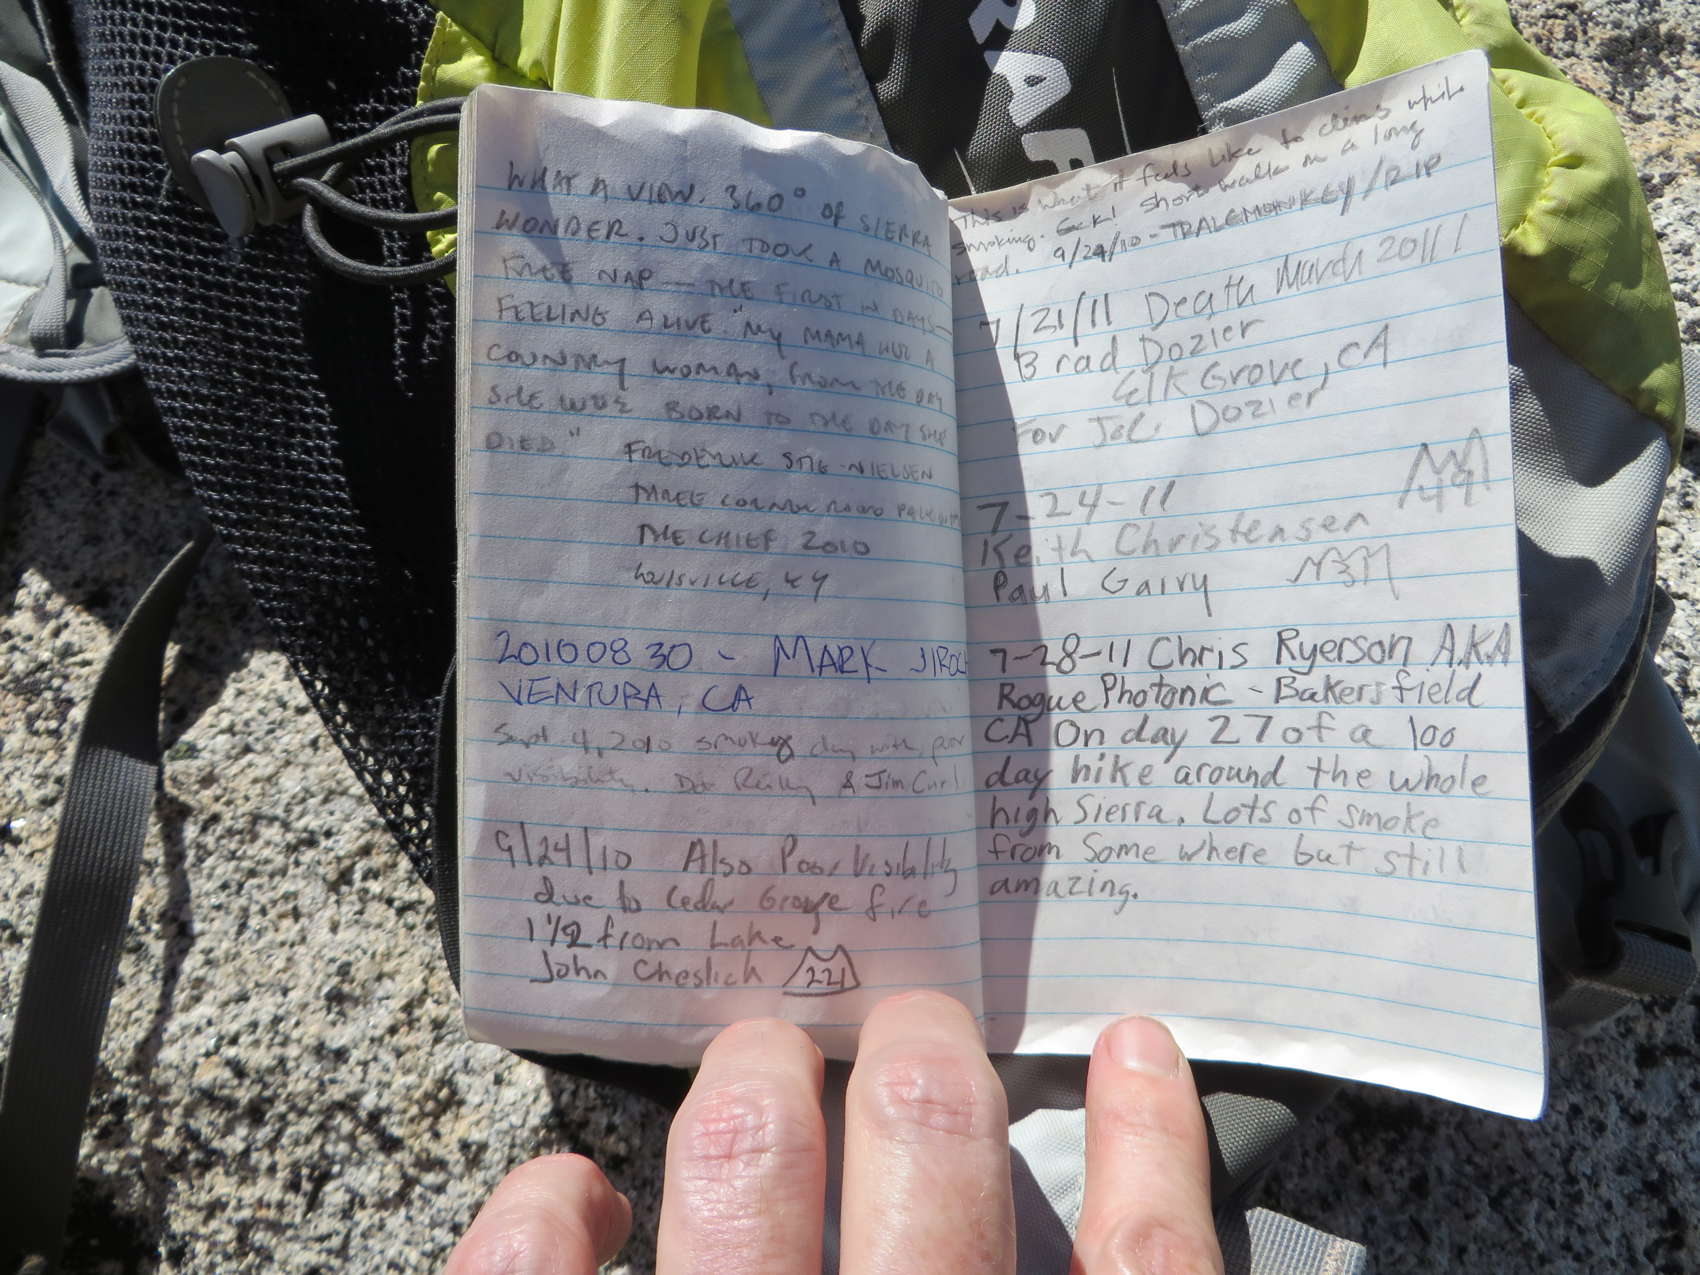 WHAT A VIEW. 360° OF SIERRA
WONDER. JUST TOOK A MOSQUITO
FREE NAP — THE FIRST IN DAYS —
FEELING ALIVE "MY MAMA WUZ A
COUNTRY WOMAN, FROM THE DAY
SHE WUZ BORN TO THE DAY SHE
DIED."
FREDERIK STIG-NIELSEN
THREE CORNER ROUND
THE CHIEF 2010
LOUISVILLE, KY
20100830 - MARK
VENTURA, CA
Sept. 4, 2010 smokey day with poor
visibility. Reilly & Jim Curl
9/24/10 Also Poor Visibility
due to Cedar Grove fire
1 1/2 from Lake
John Cheslick 221
This is what it feels like to climb while
smoking. Eek! short walk on a long
road. 9/24/10 - TRALEMONKEY/RIP
7/21/11 Death March 2011!
Brad Dozier
Elk Grove, CA
For Dozier
7-24-11 49
Keith Christensen
Paul Gairy
7-28-11 Chris Ryerson A.K.A
Rogue Photonic - Bakersfield
CA On day 27 of a 100
day hike around the whole
high Sierra. Lots of smoke
from some where but still
amazing.